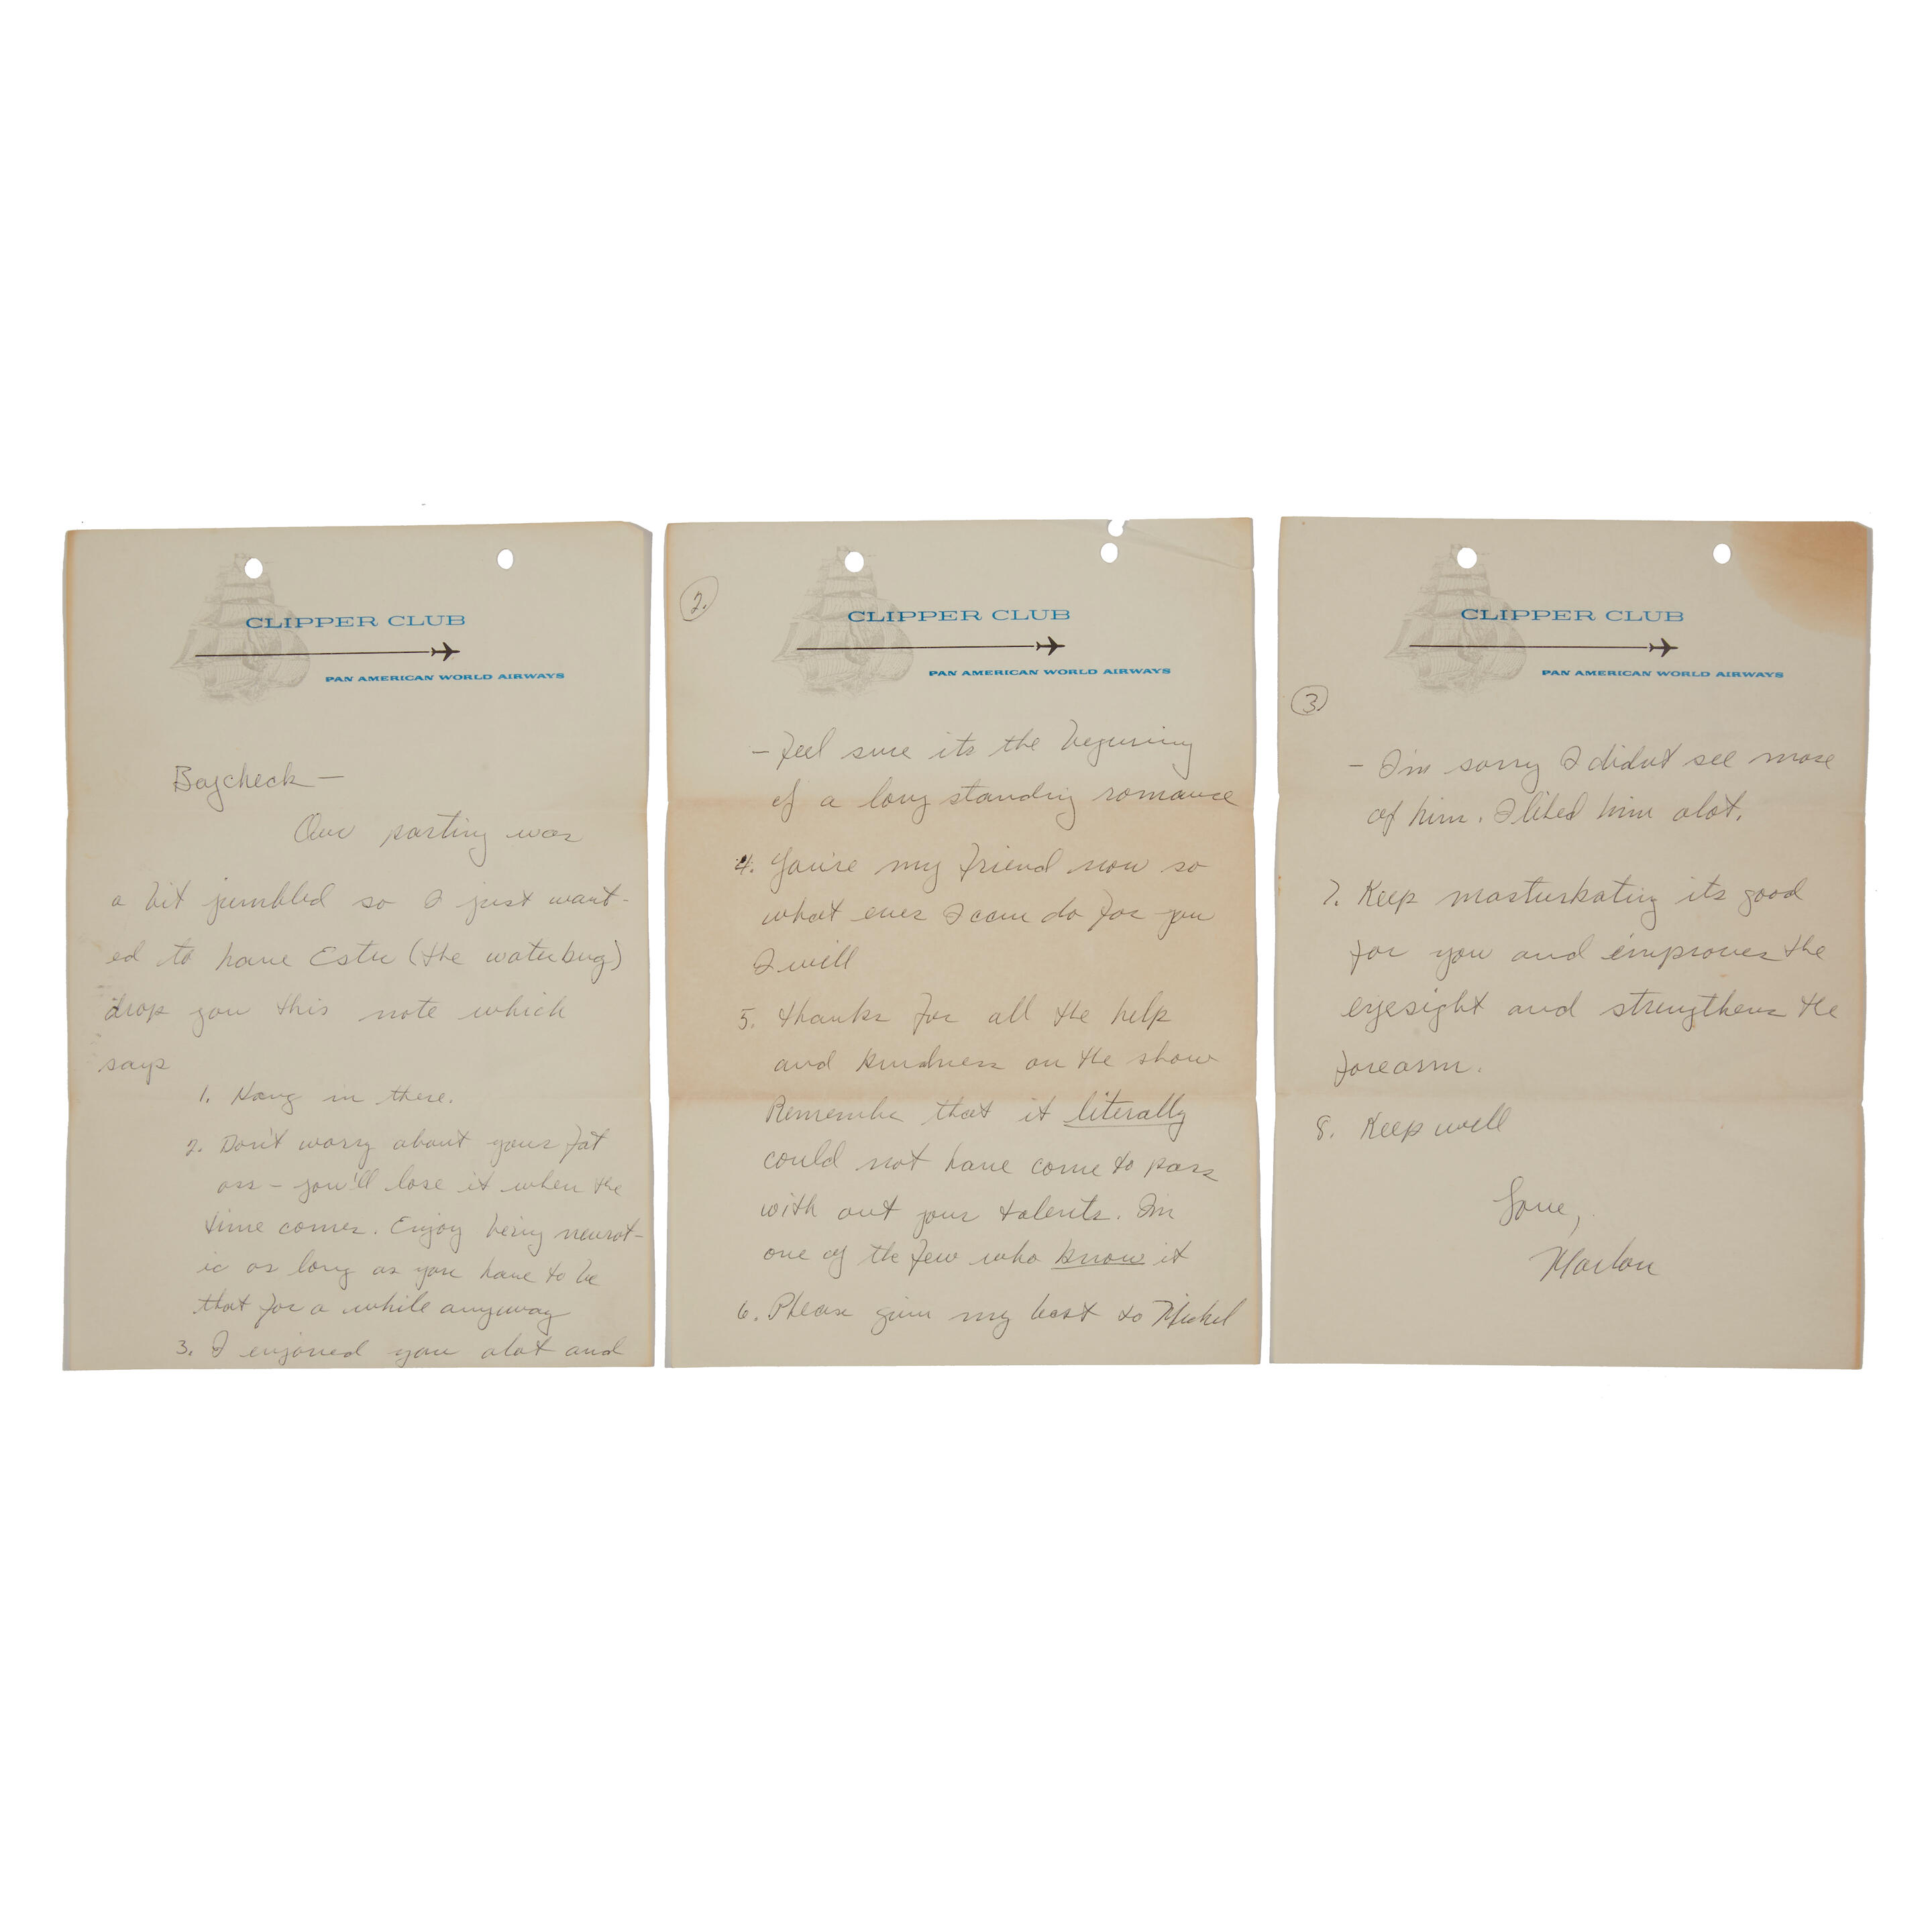 CLIPPER CLUB
PAN AMERICAN WORLD AIRWAYS
Baycheck —
Our parting was
a bit jumbled so I just want-
ed to have Ester (the waterbug)
drop you this note which
says
1. Hang in there.
2. Don't worry about your fat
ass – you'll lose it when the
time comes. Enjoy being neurot-
ic as long as you have to be
that for a while anyway
3. I enjoyed you alot and
2.
CLIPPER CLUB
PAN AMERICAN WORLD AIRWAYS
– feel sure its the beginning
of a long standing romance
4. You're my friend now so
what ever I can do for you
I will
5. thanks for all the help
and kindness on the show
Remember that it literally
could not have come to pass
with out your talents. I'm
one of the few who know it
6. Please give my best to
3
CLIPPER CLUB
PAN AMERICAN WORLD AIRWAYS
– I'm sorry I didn't see more
of him. I liked him alot.
7. Keep masturbating its good
for you and improves the
eyesight and strengthens the
forearm.
8. Keep well
Love,
Marlon